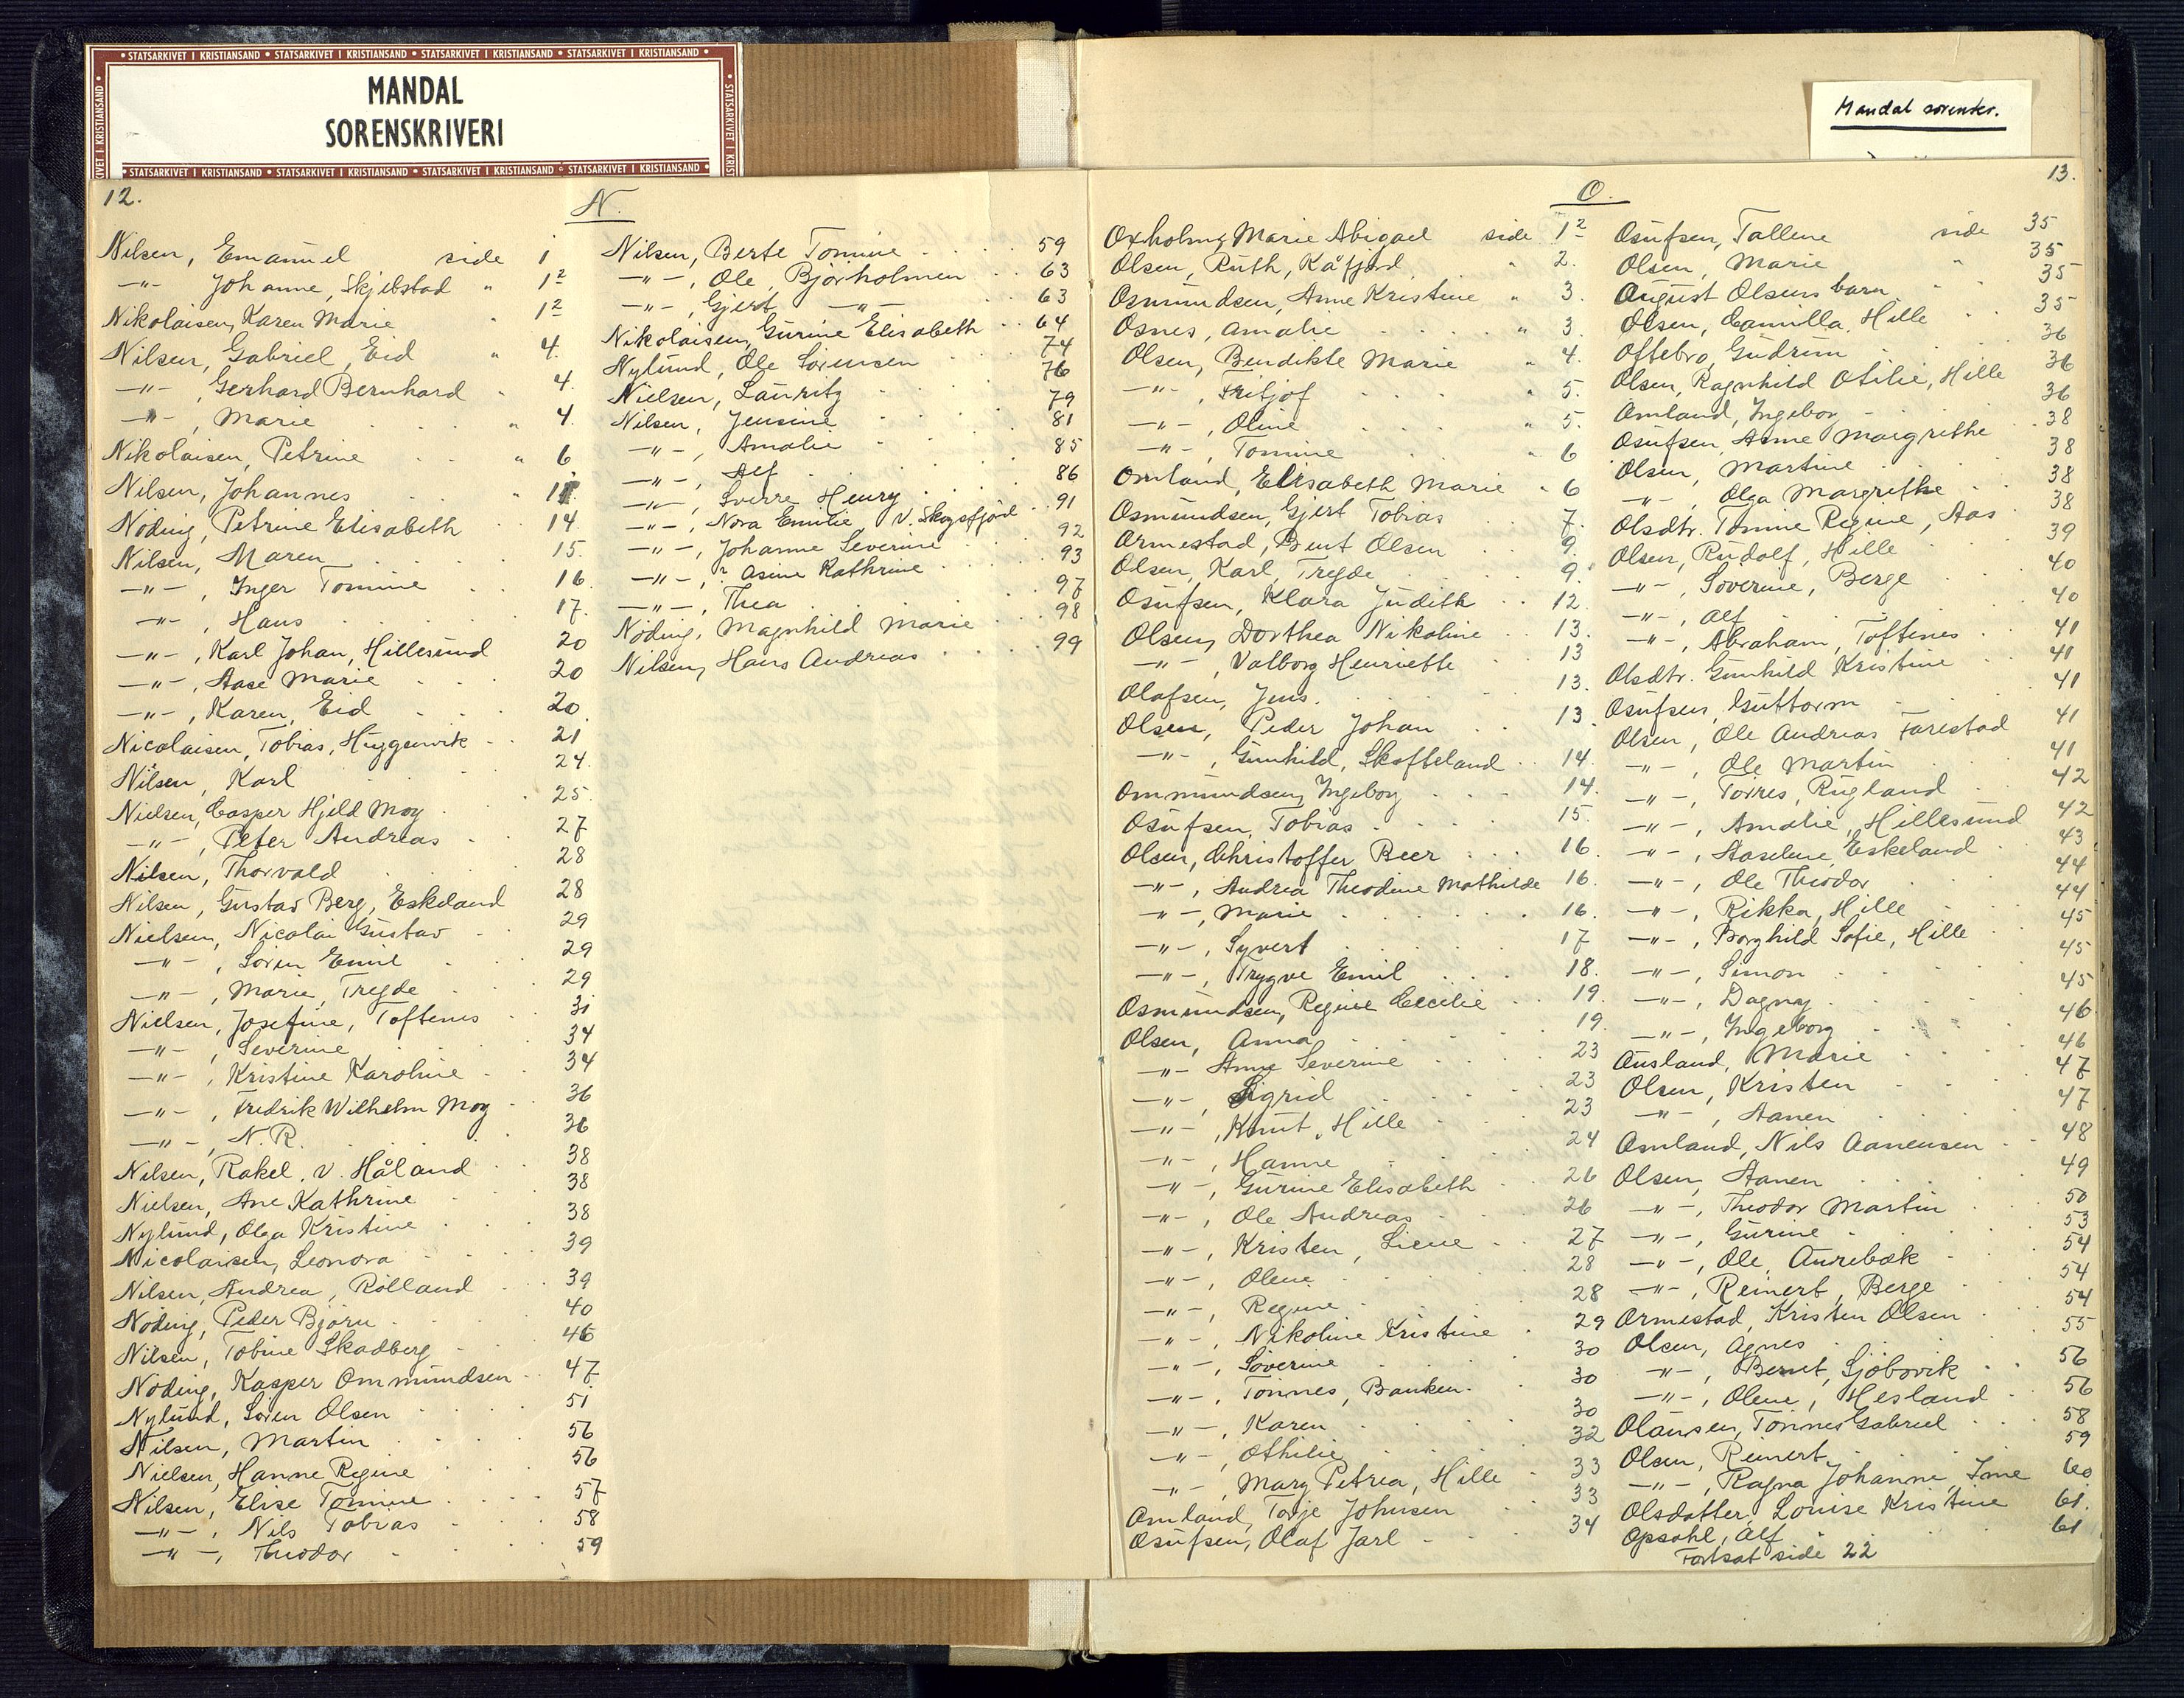 • STATSARKIVET I KRISTIANSAND • STATSARKIVET I KRISTIANSAND • STATSARKIVET I KRISTIANSAND • STATSARKIVET I KRISTIANSAND •
MANDAL
SORENSKRIVERI
• STATSARKIVET I KRISTIANSAND • STATSARKIVET I KRISTIANSAND • STATSARKIVET I KRISTIANSAND • STATSARKIVET I KRISTIANSAND •
12.
N.
Nilsen, Emanuel side 1
-"- Johanne, Skjebstad " 1²
Nikolaisen, Karen Marie " 1²
Nilsen, Gabriel, Eid " 4.
-"-, Gerhard Bernhard 4
-"-, Marie " 4
Nikolaisen, Petrine " 6
Nilsen, Johannes "
Nöding, Petrine Elisabeth 14
Nilsen, Maren 15.
-"-, Inger Tomine 16
-"-, Hans 17.
-"-, Karl Johan, Hillesund 20
-"-, Aase Marie 20
-"-, Karen, Eid 20
Nicolaisen, Tobias, Huggenvik 21
Nilsen, Karl 24.
Nielsen, Casper Hjeld Moy 25
-"-, Peter Andreas 27
Nilsen, Thorvald 28
Nilsen, Gustav Berg, Eskeland 28
Nielsen, Nicolai Gustav 29
-"-, Sören Emil 29
-"-, Marie, Tregde 29
Nielsen, Josefine, Toftenes 31
-"-, Severine 34
-"-, Kristine Karoline 34
-"-, Fredrik Wilhelm Moy 36
-"-, N. R. 36
Nilsen, Rakel, v. Håland 38
Nielsen, Ane Kathrine 38
Nylund, Olga Kristine 38
Nicolaisen, Leonora 39
Nilsen, Andrea, Rölland 39
Nöding, Peder Björn 40
Nilsen, Tobine Skadberg 46
Nöding, Kasper Ommundsen 47
Nylund, Sören Olsen 51
Nilsen, Martin 56
Nielsen, Hanne Regine 56
Nilsen, Elise Tomine 57
-"-, Nils Tobias 58
-"-, Theodor 59
Nilsen, Berte Tomine 59
-"-, Ole, Björholmen 63
-"-, Gjert -"- 63
Nikolaisen, Gurine Elisabeth 64
Nylund, Ole Sörensen 74
Nielsen, Lauritz 76
Nilsen, Jensine 79
-"-, Amalie 81
-"-, Alf 85
-"-, Sverre Henry 86
-"-, Nora Emilie, v. Skogsfjord 91
-"-, Johanne Severine 92
-"-, ? Asine Kathrine 93
-"-, Thea 97
Nöding, Magnhild Marie 98
Nilsen, Hans Andreas 99
Mandal sorenskr.
13.
O.
Oxholm, Marie Abigael side 1²
Olsen, Ruth, Kåfjord " 2.
Osmundsen, Anne Kristine " 3.
Osnes, Amalie " 3.
Olsen, Bendikte Marie " 4.
-"-, Fritjof " 5.
-"-, Oline " 5.
-"-, Tomine " 6
Omland, Elisabeth Marie 6
Osmundsen, Gjert Tobias 7.
Ormestad, Bent Olsen 9.
Olsen, Karl, Tregde 9.
Osufsen, Klara Judith 12.
Olsen, Dorthea Nikoline 13.
-"-, Valborg Henriette 13
Olafsen, Jens. 13.
Olsen, Peder Johan 13.
-"-, Gunhild, Skofteland 14.
Ommundsen, Ingeborg 14.
Osufsen, Tobias 15.
Olsen, Christoffer Beer 16.
-"-, Andrea Theodine Mathilde 16.
-"-, Marie 16.
-"-, Syvert 17
-"-, Trygve Emil 18.
Osmundsen, Regine Cecilie 19.
Olsen, Anna 19.
-"- Anne Severine 23
-"-, Sigrid 23
-"-, Knut, Hille 23
-"-, Hanne 24
-"-, Gurine Elisabeth 26
-"-, Ole Andreas 26
-"-, Kristen, Liene 27
-"-, Olene 28
-"-, Regine 28
-"-, Nikoline Kristine 29
-"-, Soverine 30
-"-, Tönnes, Banken. 30
-"-, Karen 30
-"-, Othilie 32
-"-, Mary Petrea, Hille 33
Omland, Torje Johnsen 33
Osufsen, Olaf Jarl 34
Osufsen, Tallene side 35
Olsen, Marie " 35
August Olsens barn 35
Olsen, Camilla, Hille 35
Oftebro, Gudrun 36
Olsen, Ragnhild Otilie, Hille 36
Omland, Ingebor 36
Osufsen, Anne Margrithe 38
Olsen, Martine 38
-"-, Olga Margrethe 38
Olsdtr. Tomine Regine, Aas 38
Olsen, Rudolf, Hille 39
-"-, Soverine, Berge 40
-"-, Alf 40
-"-, Abraham, Toftenes 41
Olsdtr. Gunhild Kristine 41
Osufsen, Guttorm 41
Olsen, Ole Andreas Farestad 41
-"-, Ole Martin 41
-"-, Torres, Rugland 42
-"-, Amalie, Hillesund 42
-"-, Aaselene, Eskeland 43
-"-, Ole Theodor 44
-"-, Rikka, Hille 44
-"-, Borghild Sofie, Hille 45
-"-, Simon 45
-"-, Dagny 45
-"-, Ingeborg 46
Ausland, Marie 46
Olsen, Kristen 47
-"-, Aanen 47
Omland, Nils Aanensen 48
Olsen, Aanen 49
-"-, Theodor Martin 50
-"-, Gurine 53
-"-, Ole, Aurebæk 54
-"-, Reinert, Berge 54
Ormestad, Kristen Olsen 54
Olsen, Agnes 55
-"-, Bernt, Sjöbovik 56
-"-, Olene, Hesland 56
Olausen, Tönnes Gabriel 58
Olsen, Reinert 59
-"-, Ragna Johanne, Ime 60
Olsdatter, Louise Kristine 61.
Opsahl, Alf 61
Fortsat side 22